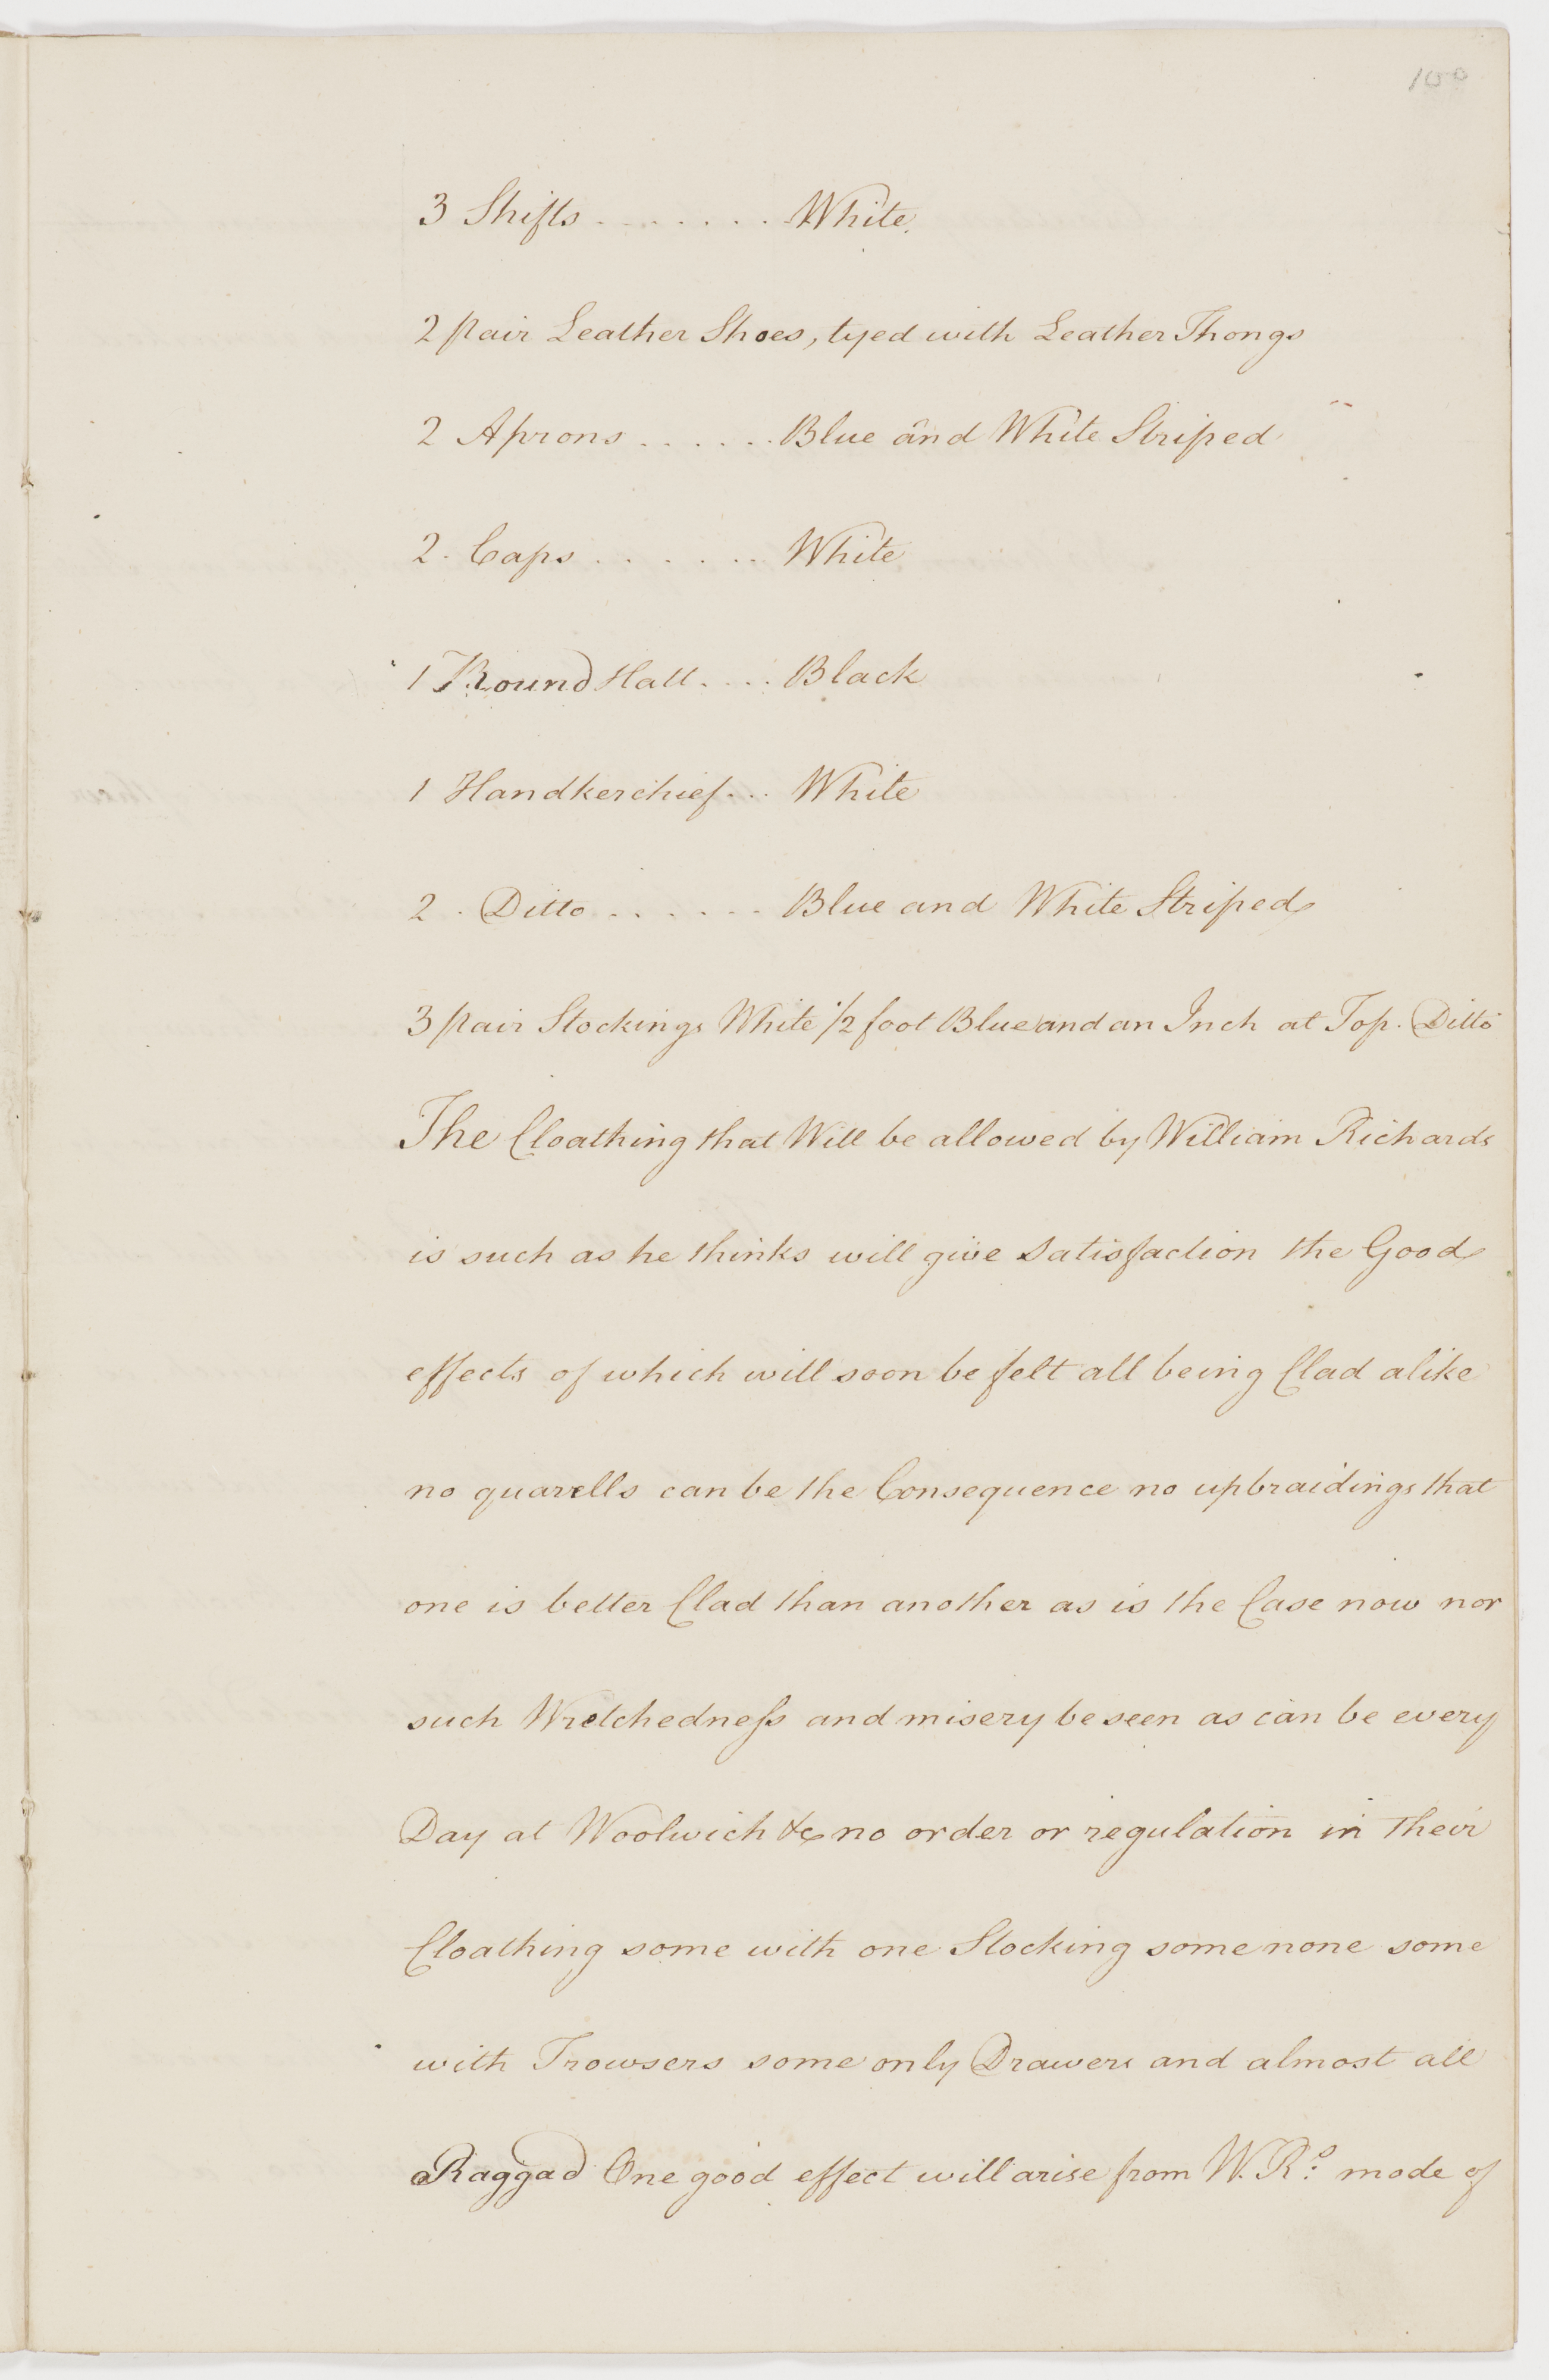 100
3 Shifts . . . . . . . . White
2 pair Leather Shoes, tyed with Leather Thongs
2 Aprons . . . . . . Blue and White Striped
2. Caps . . . . . . . White
1 Round Hatt . . . . Black
1 Handkerchief . . . White
2 . Ditto . . . . . . Blue and White Striped
3 pair Stockings White 1/2 foot Blue and an Inch at Top. Ditto
The Cloathing that Will be allowed by William Richards
is such as he thinks will give Satisfaction the Good
effects of which will soon be felt all being Clad alike
no quarells can be the Consequence no upbraidings that
one is better Clad than another as is the Case now nor
such Wretchedneſs and misery be seen as can be every
Day at Woolwich &c no order or regulation in their
Cloathing some with one Stocking some none some
with Trowsers some only Drawers and almost all
Raggad One good effect will arise from W. R.s mode of